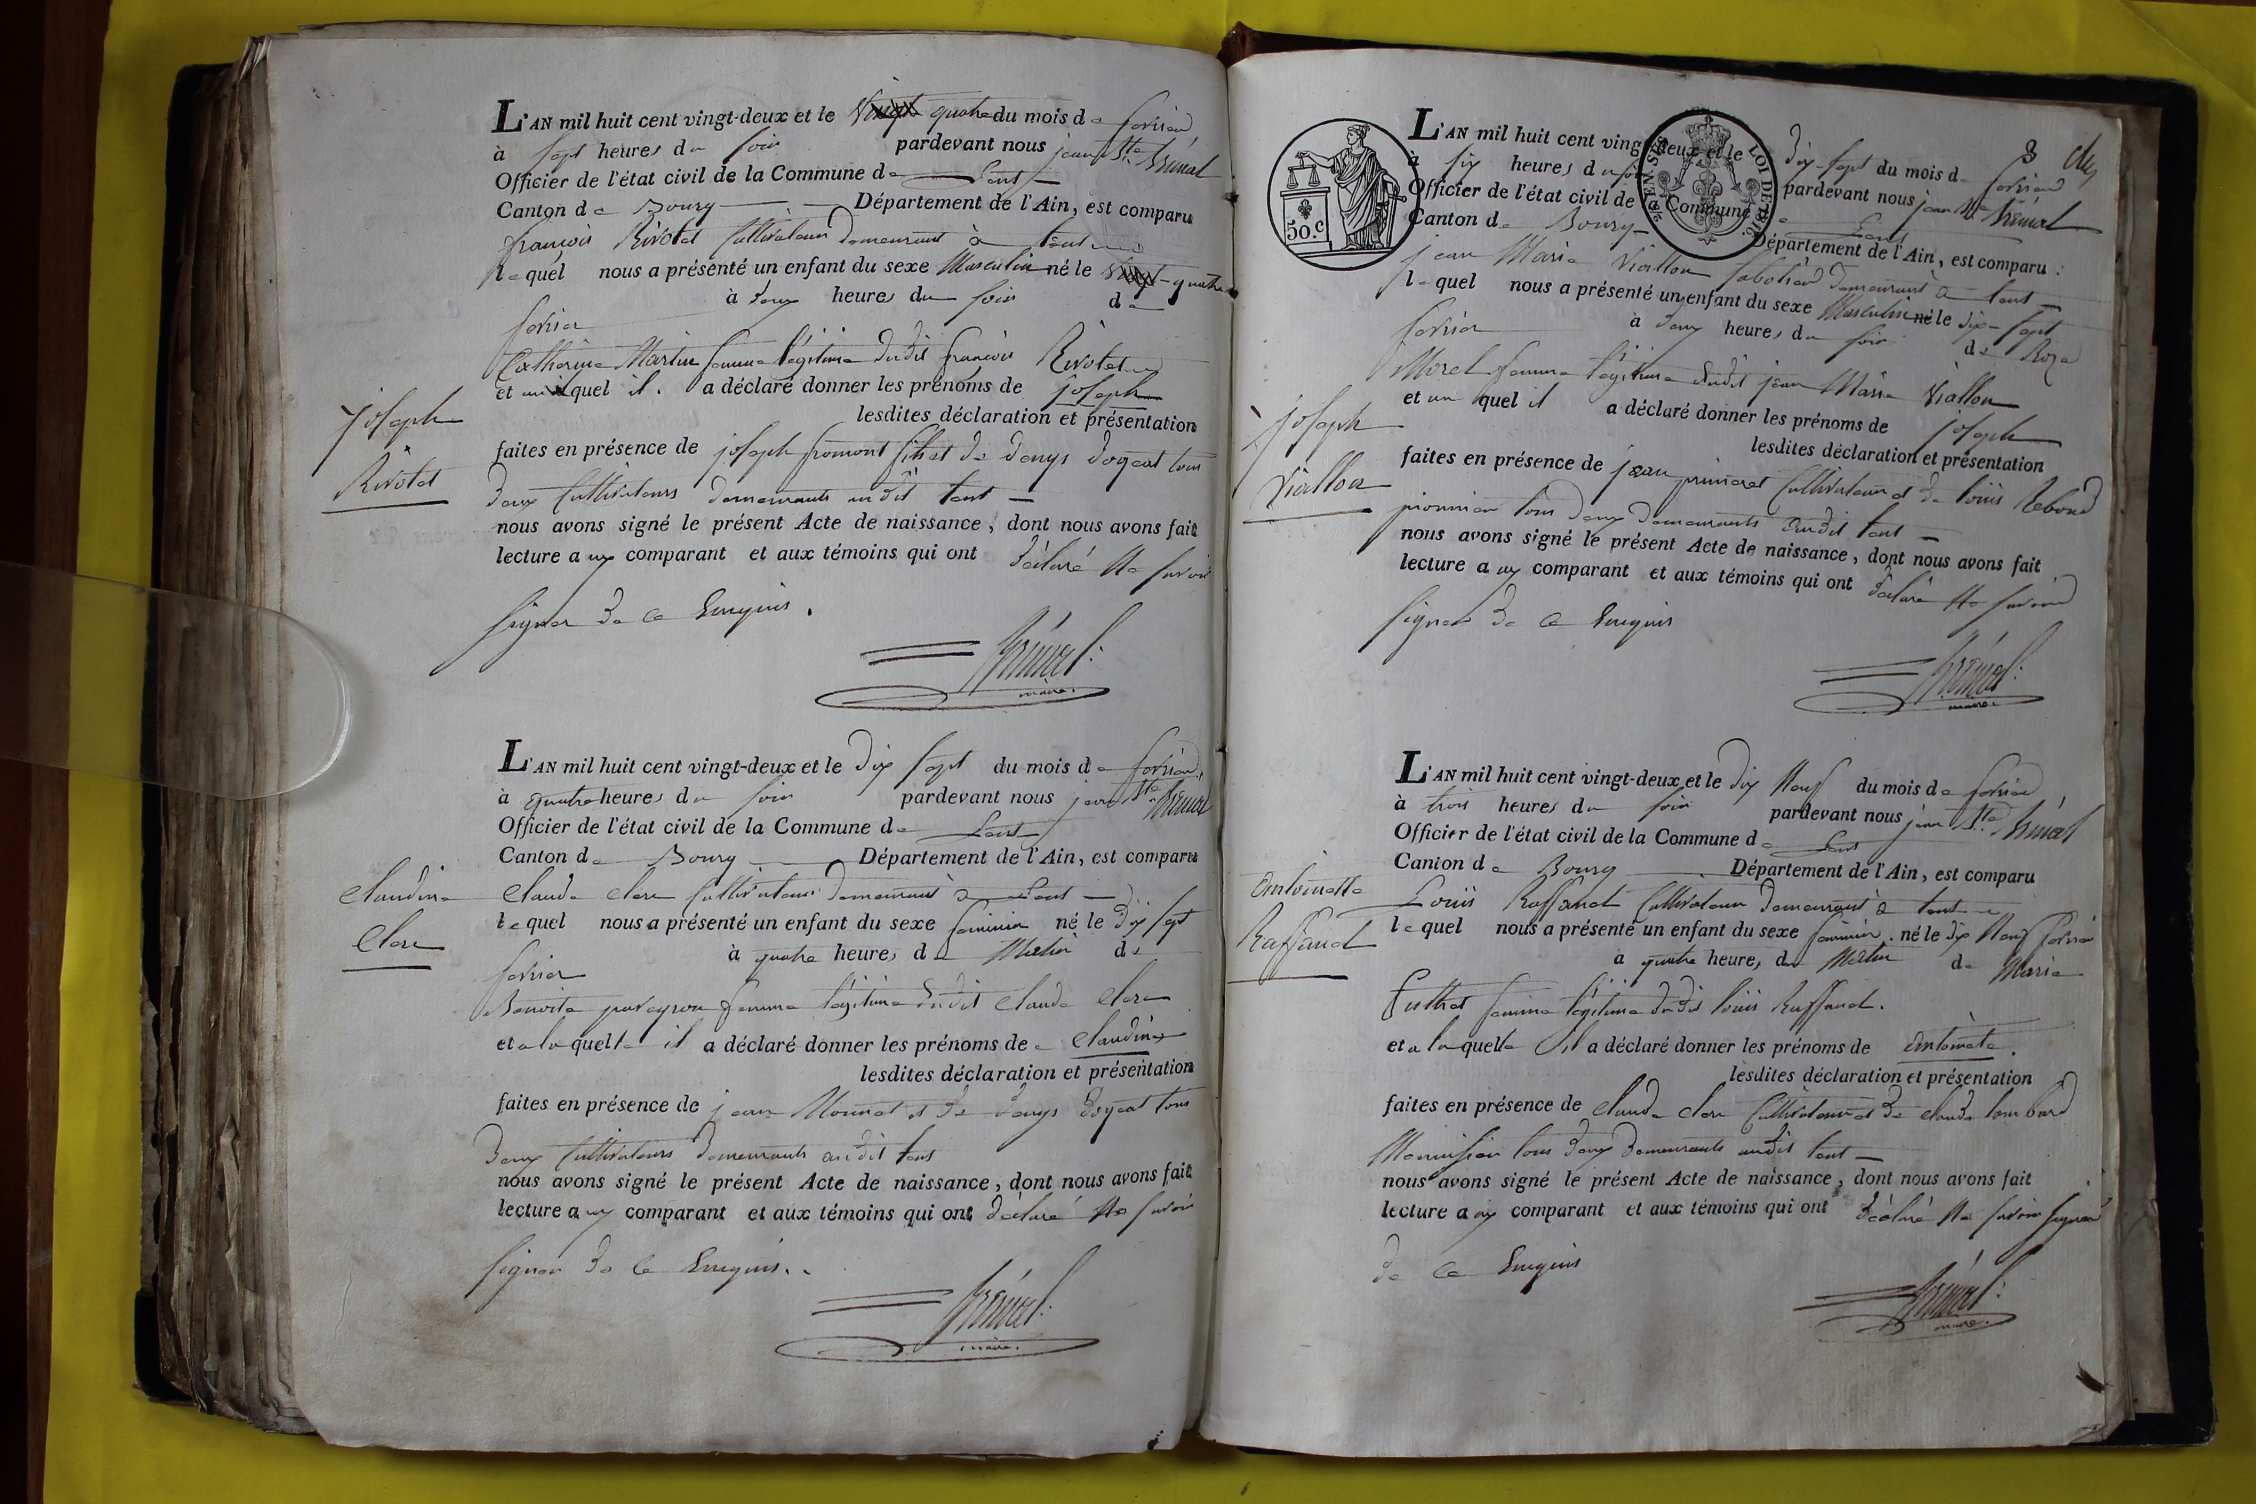 L'AN mil huit cent vingt-deux et le Vingt quatre du mois de fevrier
à sept heures du soir pardevant nous jean Bte
Officier de l'état civil de la Commune de Lent
Canton de Bourg Département de l'Ain, est comparu
françois Rivotet Cultivateur demeurant à Lent
lequel nous a présenté un enfant du sexe Masculin né le Vingt-quatre
fevrier à deux heures du soir de
Catherine Martin femme légitime dudit françois Rivotet
et quel il a déclaré donner les prénoms de joseph
joseph
Rivotet
lesdites déclaration et présentation
faites en présence de joseph fromont et de denys tous
deux Cultivateurs demeurants audit Lent
nous avons signé le présent Acte de naissance, dont nous avons fait
lecture aux comparant et aux témoins qui ont déclaré Ne savoir
signer de ce Enquis.
maire.
L'AN mil huit cent vingt-deux et le Dix sept du mois de fevrier
à quatre heures du soir pardevant nous jean Bte
Officier de l'état civil de la Commune de Lent
Canton de Bourg Département de l'Ain, est comparu
claudine
Clere
Claude Clere Cultivateur demeurant à Lent
lequel nous a présenté un enfant du sexe feminin né le Dix sept
fevrier à quatre heures du Matin de
Benoite femme légitime dudit Claude Clere
et a laquelle il a déclaré donner les prénoms de Claudine
lesdites déclaration et présentation
faites en présence de jean Monnet et de denys tous
deux Cultivateurs demeurants audit Lent
nous avons signé le présent Acte de naissance, dont nous avons fait
lecture aux comparant et aux témoins qui ont déclaré Ne savoir
signer de ce Enquis.
maire.
8
50.c
L'AN mil huit cent vingt-deux et le dix-sept du mois de fevrier
à six heures du soir pardevant nous jean Bte
Officier de l'état civil de la Commune de Lent
LOI DE
Canton de Bourg Département de l'Ain, est comparu
jean Marie Viallon sabotier demeurant à Lent
lequel nous a présenté un enfant du sexe Masculin né le dix-sept
fevrier à deux heures du soir de Roze
Morel femme légitime dudit jean Marie Viallon
et au quel il a déclaré donner les prénoms de joseph
joseph
Viallon
lesdites déclaration et présentation
faites en présence de jean Cultivateur et de Louis Rebond
pionnier tous deux demeurants audit Lent
nous avons signé le présent Acte de naissance, dont nous avons fait
lecture aux comparant et aux témoins qui ont déclaré Ne savoir
signer de ce Enquis
maire.
L'AN mil huit cent vingt-deux et le dix Neuf du mois de fevrier
à trois heures du soir pardevant nous jean Bte
Officier de l'état civil de la Commune de Lent
Canton de Bourg Département de l'Ain, est comparu
Antoinette
Raffanel
Louis Raffanel Cultivateur demeurant à Lent
lequel nous a présenté un enfant du sexe feminin né le dix Neuf fevrier
à quatre heures du Matin de Marie
femme légitime dudit Louis Raffanel.
et a laquelle il a déclaré donner les prénoms de Antoinete.
lesdites déclaration et présentation
faites en présence de Claude Clere Cultivateur et de Claude Lombard
Menuisier tous deux demeurants audit Lent
nous avons signé le présent Acte de naissance, dont nous avons fait
lecture aux comparant et aux témoins qui ont déclaré Ne savoir signer
de ce Enquis
maire.